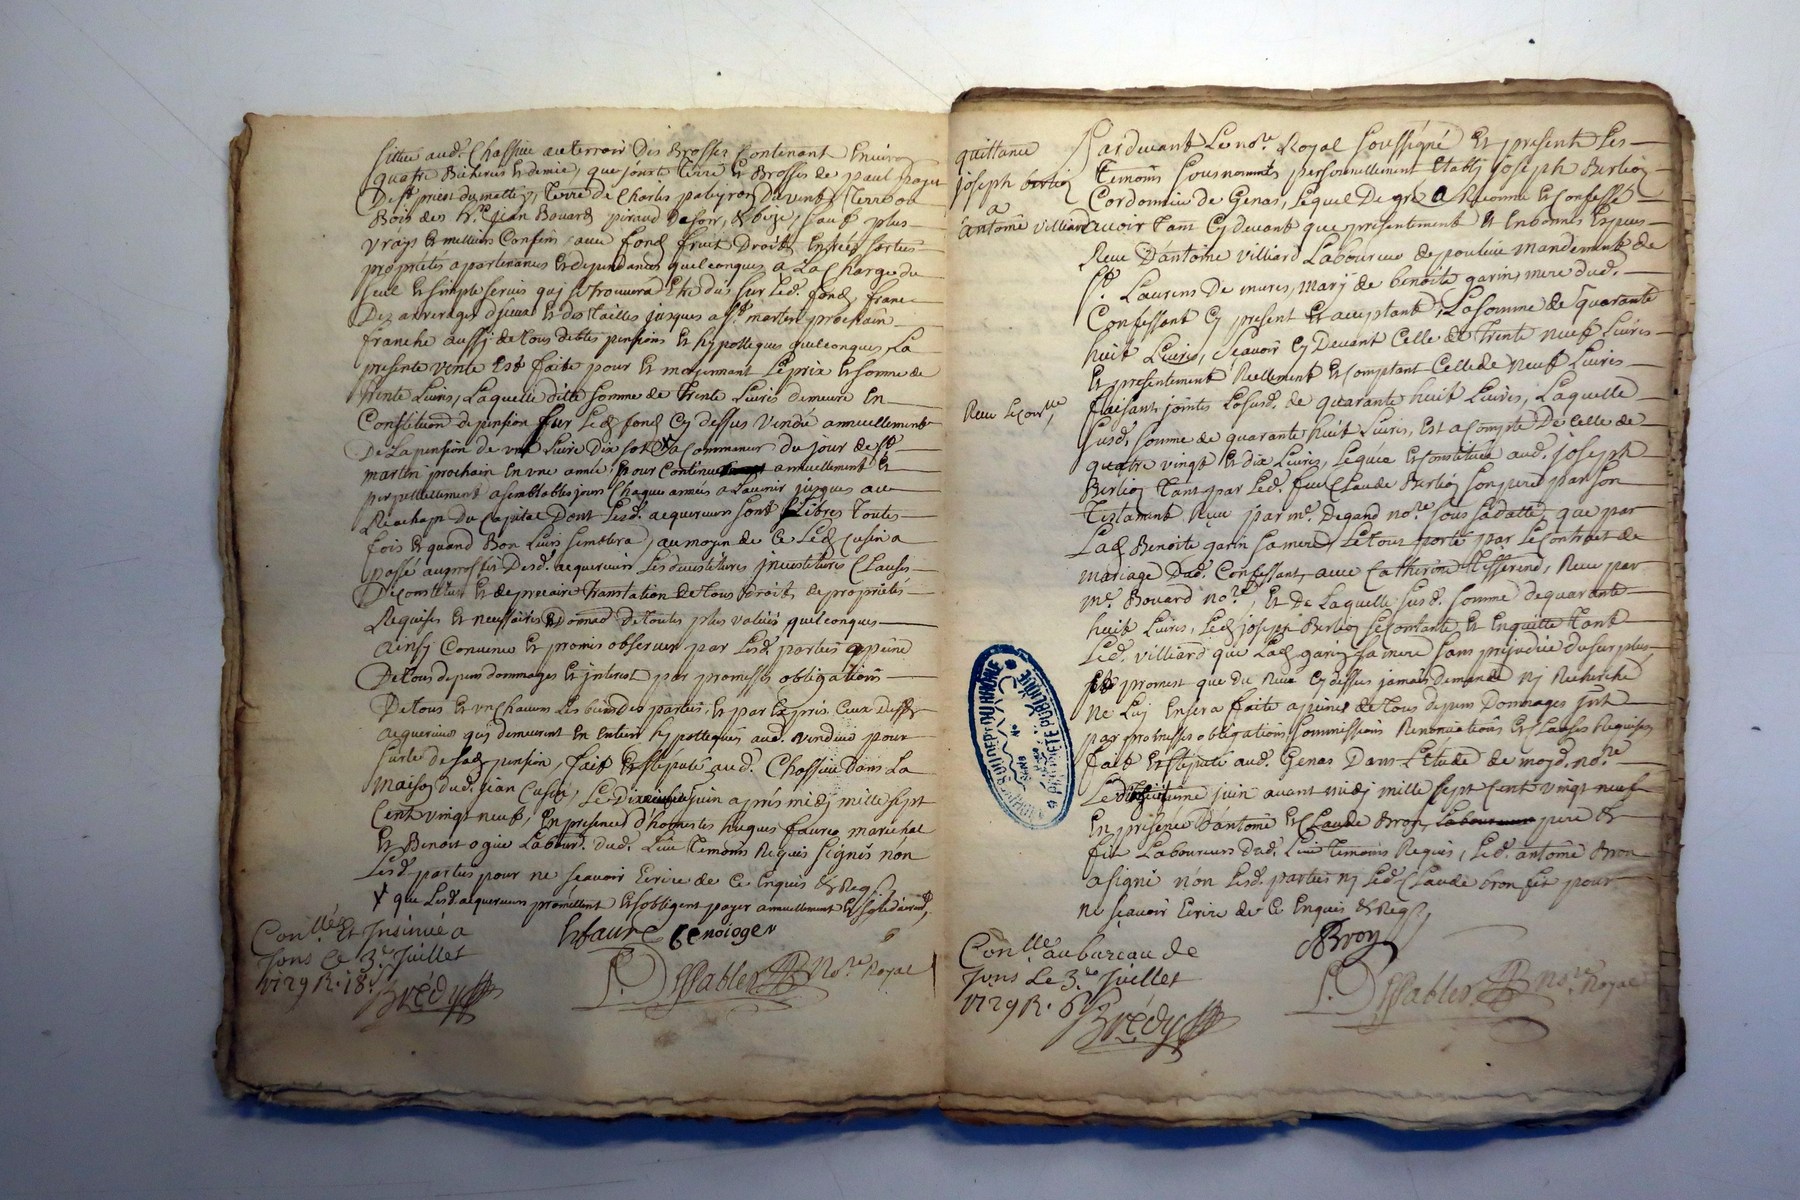 sittue aud. Chassieu au terroir Des Brosses Contenant Environ
quatre Bicherées Et demie, que jouxte Terre Et Brosses de paul payet
De St priest du matin, Terre de Charles du vent, Terre ou
Bois des hrs jean Bouard piraud De soir, & bize, sauf plus
vrays Et meilleurs Confins, avec fond fruit Droits Entrées sorties
proprietés apartenances Et dependances quelconques, a La Charge du
seul Et simple servis qui se trouvera Etre du sur Led. fond, franc
Des arrerages d'jceux Et des Tailles jusques a St martin prochain
franche aussi de tous debtes pensions Et hypotteques quelconques La
presente vente Est faite pour Et moyennant Le prix Et somme de
Trente Livres, Laquelle ditte somme de Trente Livres demeure En
Constitution de pension sur Led. fond Cy dessus vendu annuellement
De La pension de une Livre Dix sols X a Commancer du jour de St
martin prochain En une année, pour Continuer annuellement Et
perpetuellement a semblables jours Chaques années a L'avenir jusques au
Reachapt Du Capital Dont Lesd. acquereurs sont Libres Toutes
fois Et quand Bon Leurs semblera, au moyen de Ce Led. Cusin a
passé au proffit Desd. acquereurs Les devestitures jnvestitures Clauses
De constitut Et de precaire Translation de Tous droits de proprietés
Requises Et necessaires Et Donna De toutes plus values quelconques
ainsy Convenu Et promis observer par Lesd. parties a peine
De tous depens dommages Et interest, par promesses obligations
De tous Et un Chacuns Les biens des parties, Et par Exprès Ceux Desd.
acquereurs qui demeurent En Entier hypotteques aud. vendeur pour
surté de sad. pension, fait Et stipulé aud. Chassieu Dans La
maison dud. jean Cusin, Le juin après midy mille sept
Cent vingt neuf, En presence d'honnestes hugues faure marechal
Et Benoit ogier Labour. dud. Lieu Temoins Requis signés non
Lesd. parties pour ne scavoir Ecrire de Ce Enquis & Reqs
X que Lesd. acquereurs promettent Et s'obligent payer annuellement Et solidairemt.
hfaure Benoi ogier
Conlle Et Insinué a
Jons Le 3e Juillet
1729 R. 18s
Brédy
No.re Royal
quittance
joseph berlioz
a
antoine villiard
Reçu Le Conlle
Pardevant Le no.re Royal soussigné Et presents Les
Temoins sousnommés personnellement Etably joseph Berlioz
Cordonnier de Genas, Lequel De gré a Reconnu Et Confessé
avoir Tant Cy devant que presentement Et En bonnes Especes
Reçu D'antoine villiard Laboureur de mandement de
St. Laurens De mures, mary de benoite garin, mere dud.
Confessant Cy present Et acceptant, La somme de quarante
huit Livres, scavoir Cy Devant Celle de Trente neuf Livres
Et presentement Reellement Et Comptant Celle de Neuf Livres
faisants jointes La susd. de quarante huit Livres, Laquelle
susd. somme de quarante huit Livres, Est a Compte De Celle de
quatre vingt Et dix Livres, Leguée Et Constituée aud. joseph
Berlioz Tant par Led. feu Claude Berlioz son pere par son
Testament Reçu par me. Degand no.re sous sa datte, que par
Lad. Benoite garin sa mere, Le tout porté par Le Contract de
mariage Dud. Confessant, avec Catherine Reçu par
me. Bouard no.re, Et De Laquelle susd. somme de quarante
huit Livres, Led. joseph Berlioz se Contante Et En quitte Tant
Led. villiard que Lad. garin sa mere sans prejudice du surplus
promest que du Reçu Cy dessus jamais Demande ny Recherche
ne Luy En sera faite a peine de Tous depens Dommages jnst
par promesses obligations, soumissions Renonciations Et Clauses Requises
fait Et stipulé aud. Genas Dans L'Etude de moyd. no.re
Le juin avant midy mille sept Cent vingt neuf
En presence D'antoine Et Claude Bron, pere &
fils Laboureurs Dud. Lieu Temoins Requis, Led. antoine Bron
a signé non Lesd. parties ny Led. Claude bron fils pour
ne scavoir Ecrire de Ce Enquis & Reqs
ABron
Conlle au bureau de
Jons Le 3e Juillet
1729 R. 6s
Brédy
No.re Royal
ARCHIVES DU DEPT DU RHÔNE
PROPRIÉTÉ PUBLIQUE